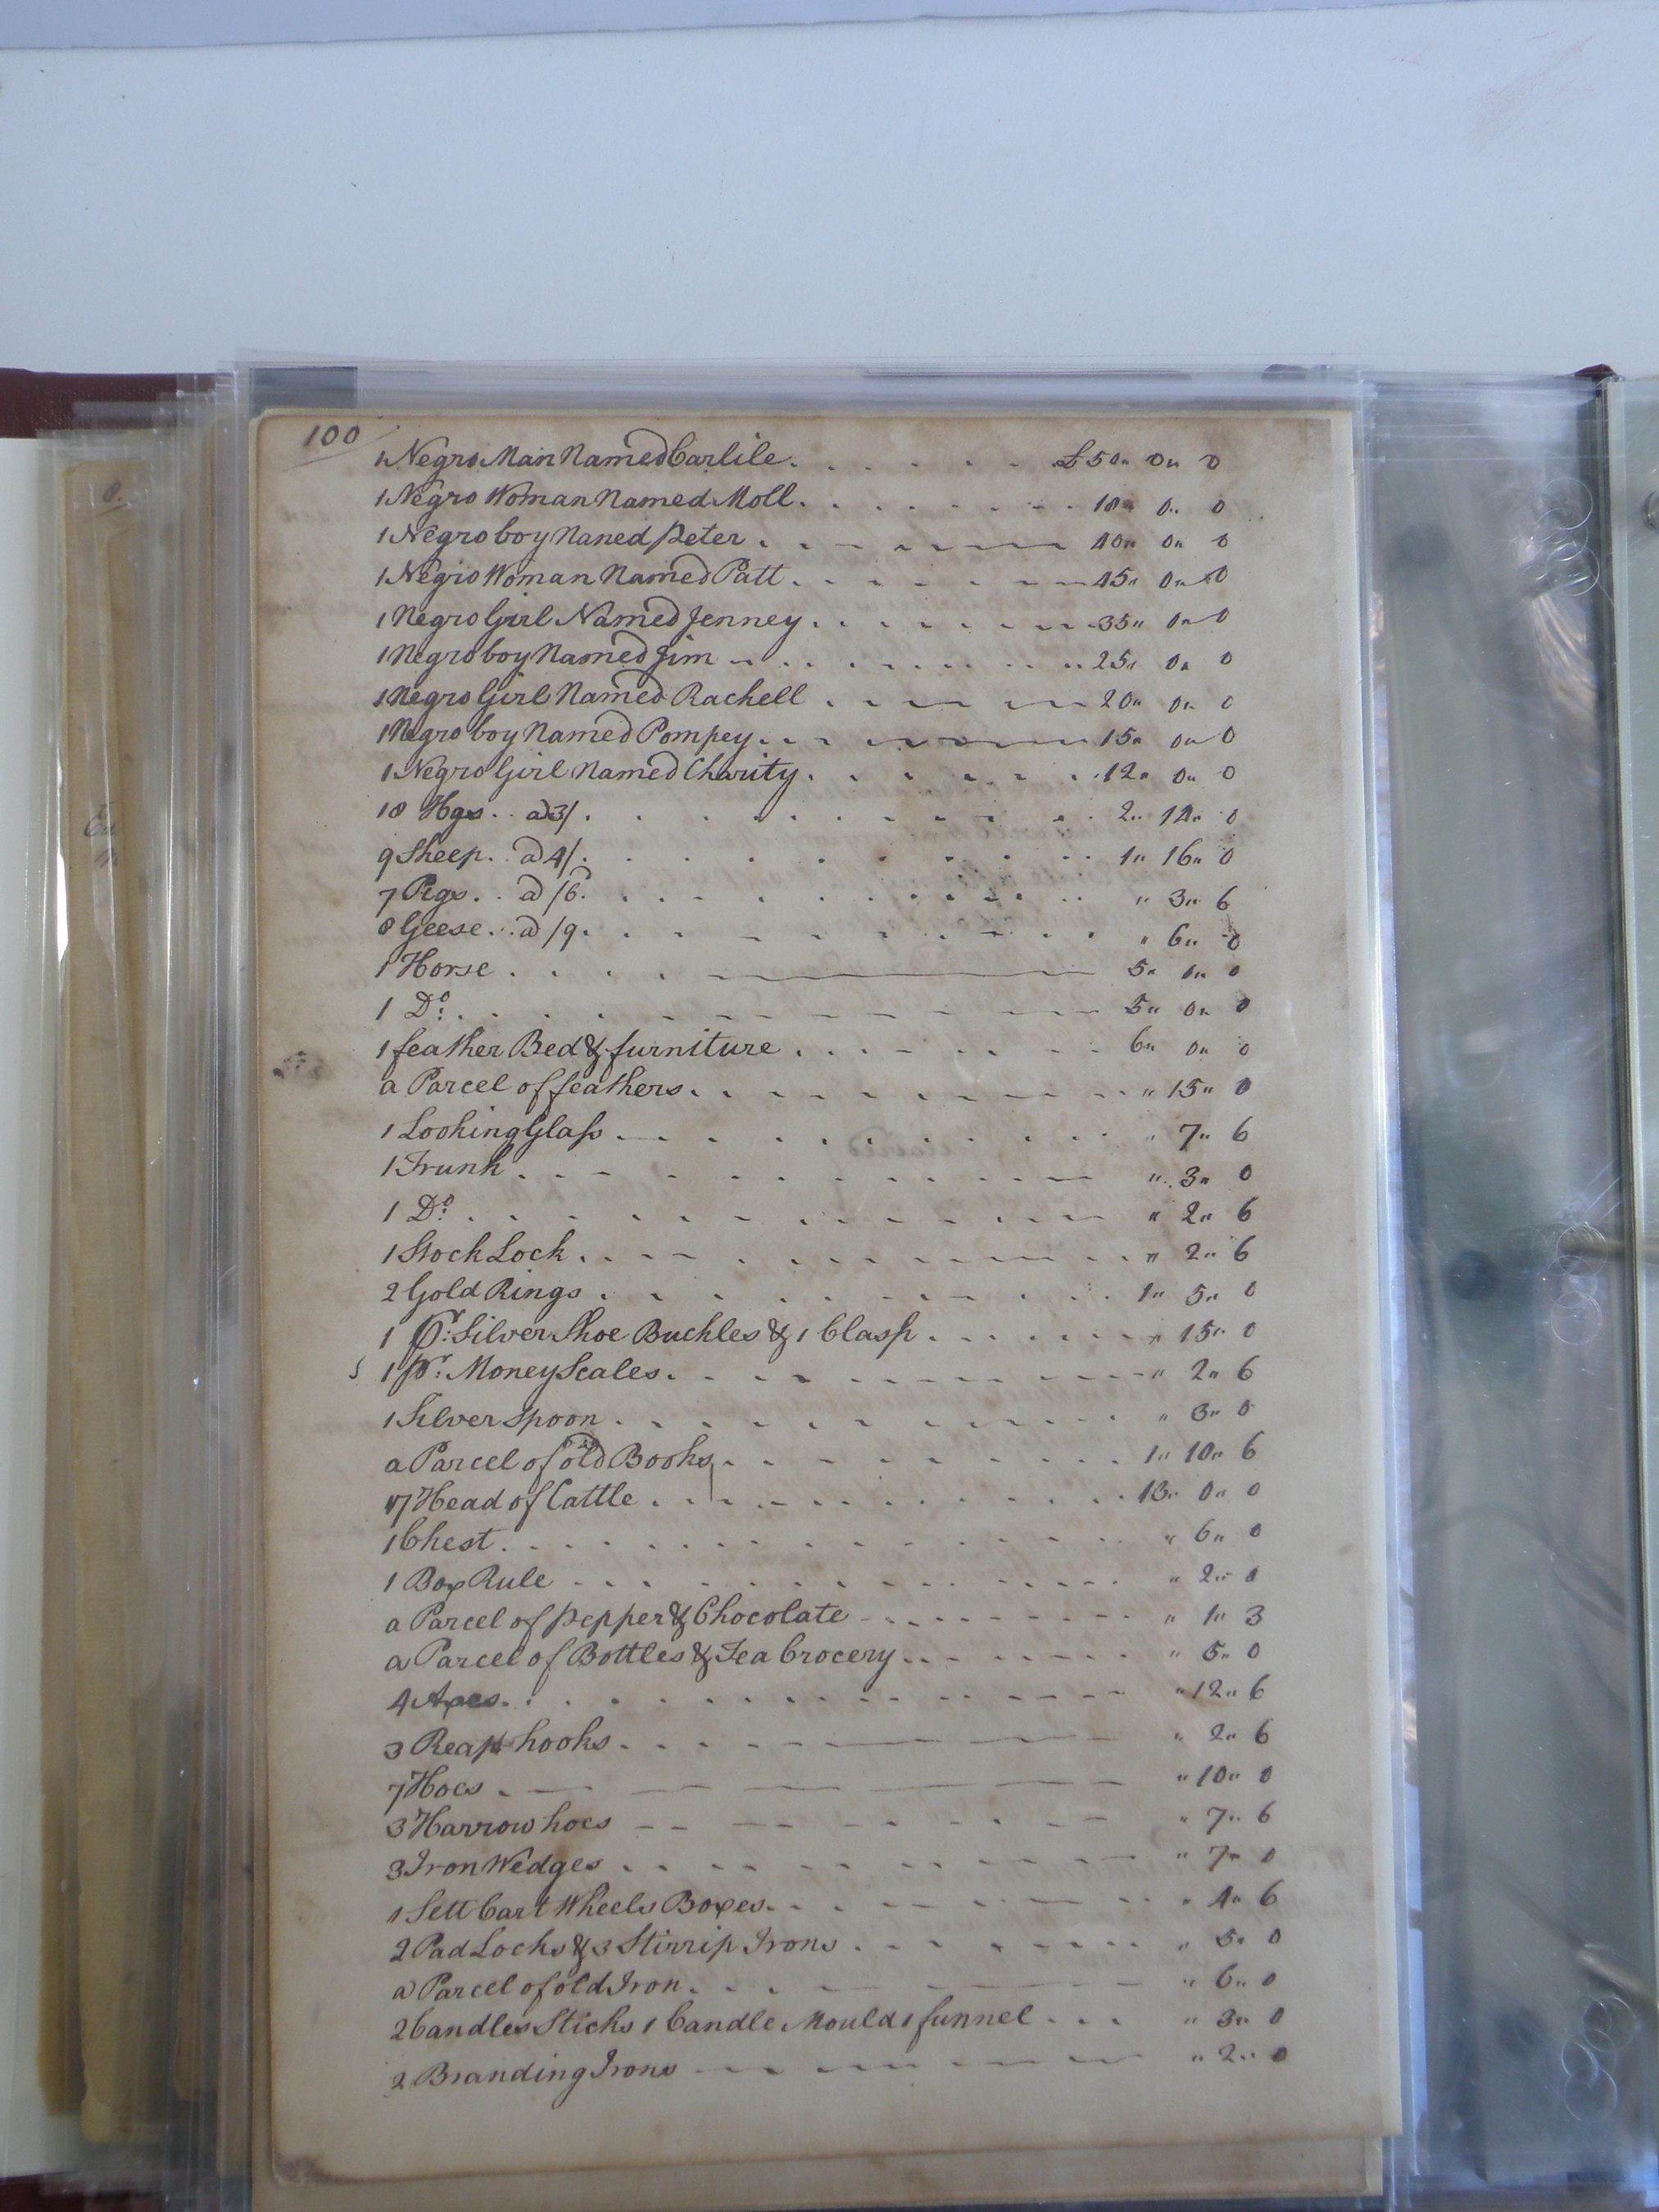 100
1 Negro Man Named Carlile . . . . . . £50 " 0 " 0
1 Negro Woman Named Moll . . . . . . 18 " 0 " 0
1 Negro boy Naned Peter . . . . . . 40 " 0 " 0
1 Negro Woman Named Patt . . . . . . 45 " 0 " 0
1 Negro Girl Named Jenney . . . . . . 35 " 0 " 0
1 Negro boy Named Jim . . . . . . 25 " 0 " 0
1 Negro Girl Named Rachell . . . . . . 20 " 0 " 0
1 Negro boy Named Pompey . . . . . . 15 " 0 " 0
1 Negro Girl Named Charity . . . . . . 12 " 0 " 0
18 Hgs . . a 3/ . . . . . . 2 " 14 " 0
9 Sheep . . a 4/ . . . . . . 1 " 16 " 0
7 Pigs . . a /6 . . . . . . " 3 " 6
8 Geese . . a /9 . . . . . . " 6 " 0
1 Horse . . . . . . 5 " 0 " 0
1 Do . . . . . . 5 " 0 " 0
1 feather Bed & furniture . . . . . . 6 " 0 " 0
a Parcel of feathers . . . . . . " 15 " 0
1 Looking Glass . . . . . . " 7 " 6
1 Trunk . . . . . . " 3 " 0
1 Do . . . . . . " 2 " 6
1 Stock Lock . . . . . . " 2 " 6
2 Gold Rings . . . . . . 1 " 5 " 0
1 pr: Silver Shoe Buckles & 1 Clasp . . . . . . " 15 " 0
1 pr: Money Scales . . . . . . " 2 " 6
1 Silver Spoon . . . . . . " 3 " 0
a Parcel of old Books . . . . . . 1 " 10 " 6
17 Head of Cattle . . . . . . 13 " 0 " 0
1 Chest . . . . . . " 6 " 0
1 Box Rule . . . . . . " 2 " 0
a Parcel of pepper & Chocolate . . . . . . " 1 " 3
a Parcel of Bottles & Tea Crocery . . . . . . " 5 " 0
4 Axes . . . . . . " 12 " 6
3 Reap hooks . . . . . . " 2 " 6
7 Hoes . . . . . . " 10 " 0
3 Harrow hoes . . . . . . " 7 " 6
3 Iron Wedges . . . . . . " 7 " 0
1 Sett Cart Wheels Boxes . . . . . . " 4 " 6
2 Pad Locks & 3 Stirrip Irons . . . . . . " 5 " 0
a Parcel of old Iron . . . . . . " 6 " 0
2 Candles Sticks 1 Candle Mould 1 funnel . . . " 3 " 0
2 Branding Irons . . . . . . " 2 " 0